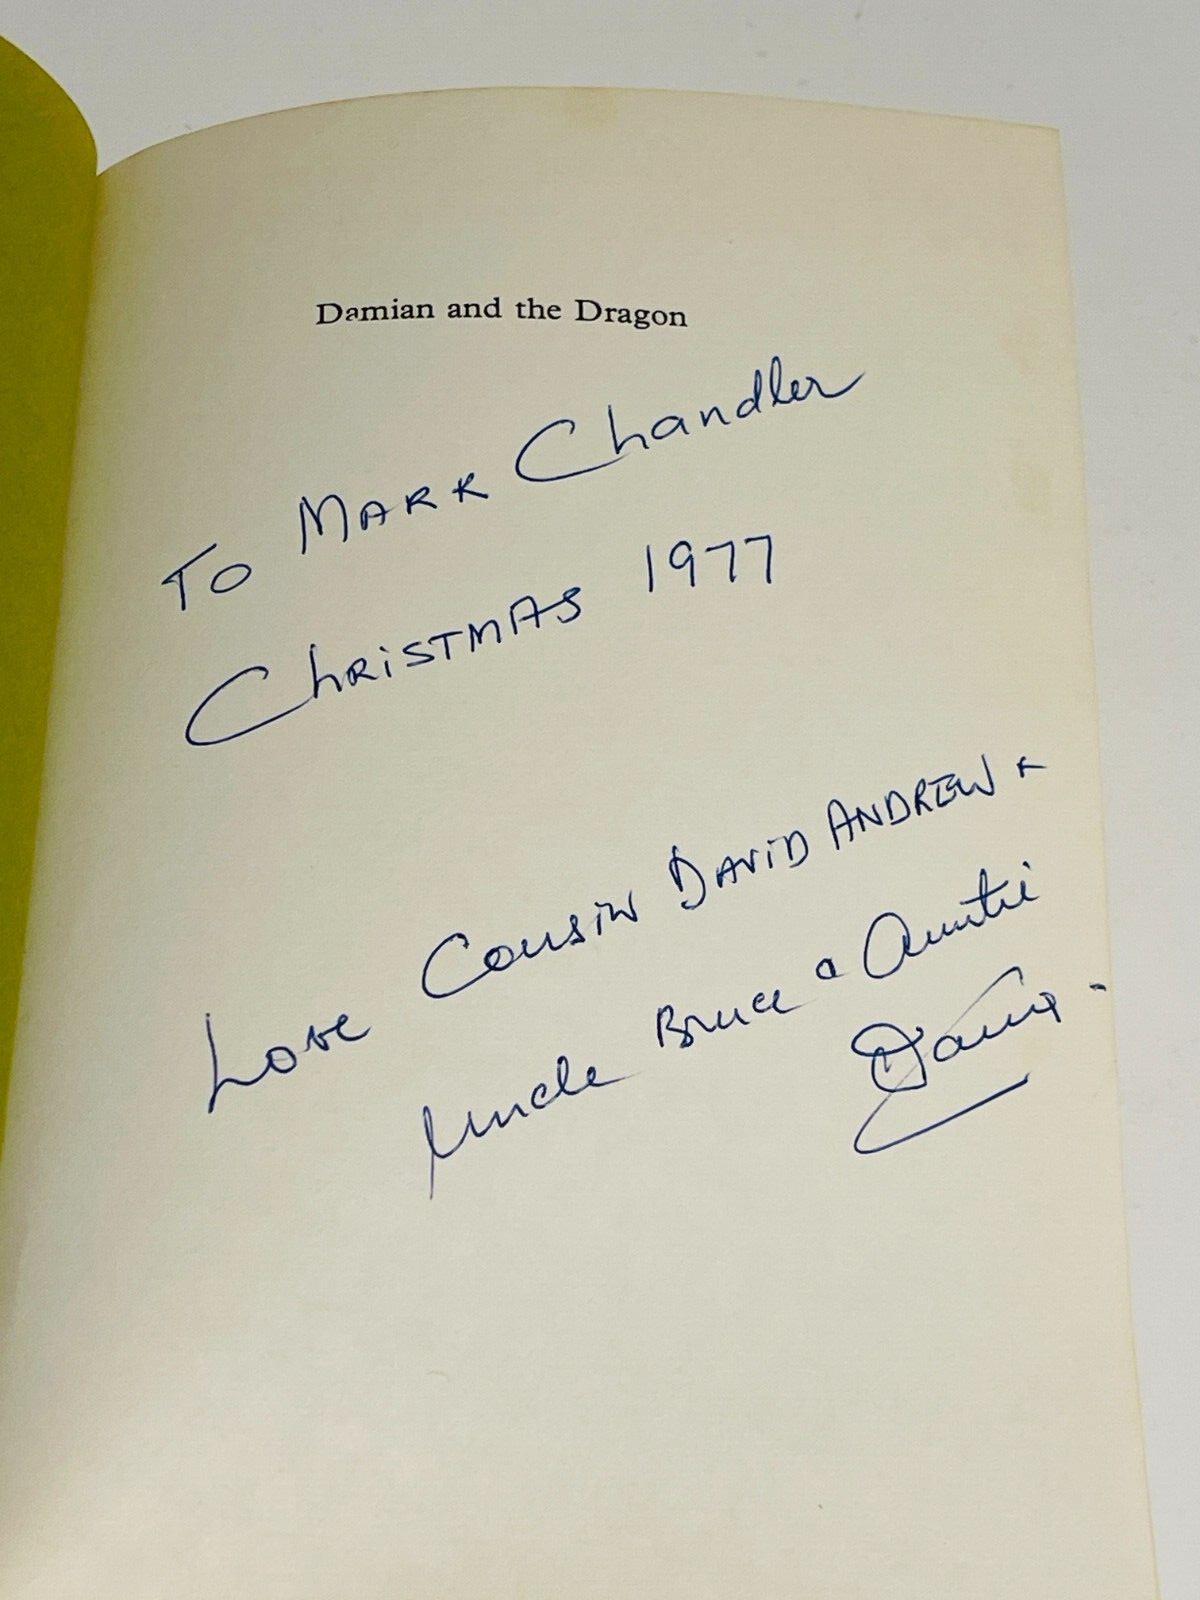 Damian and the Dragon
To Mark Chandler
Christmas 1977
Love Cousin David Andrew &
Uncle Bruce & Auntie